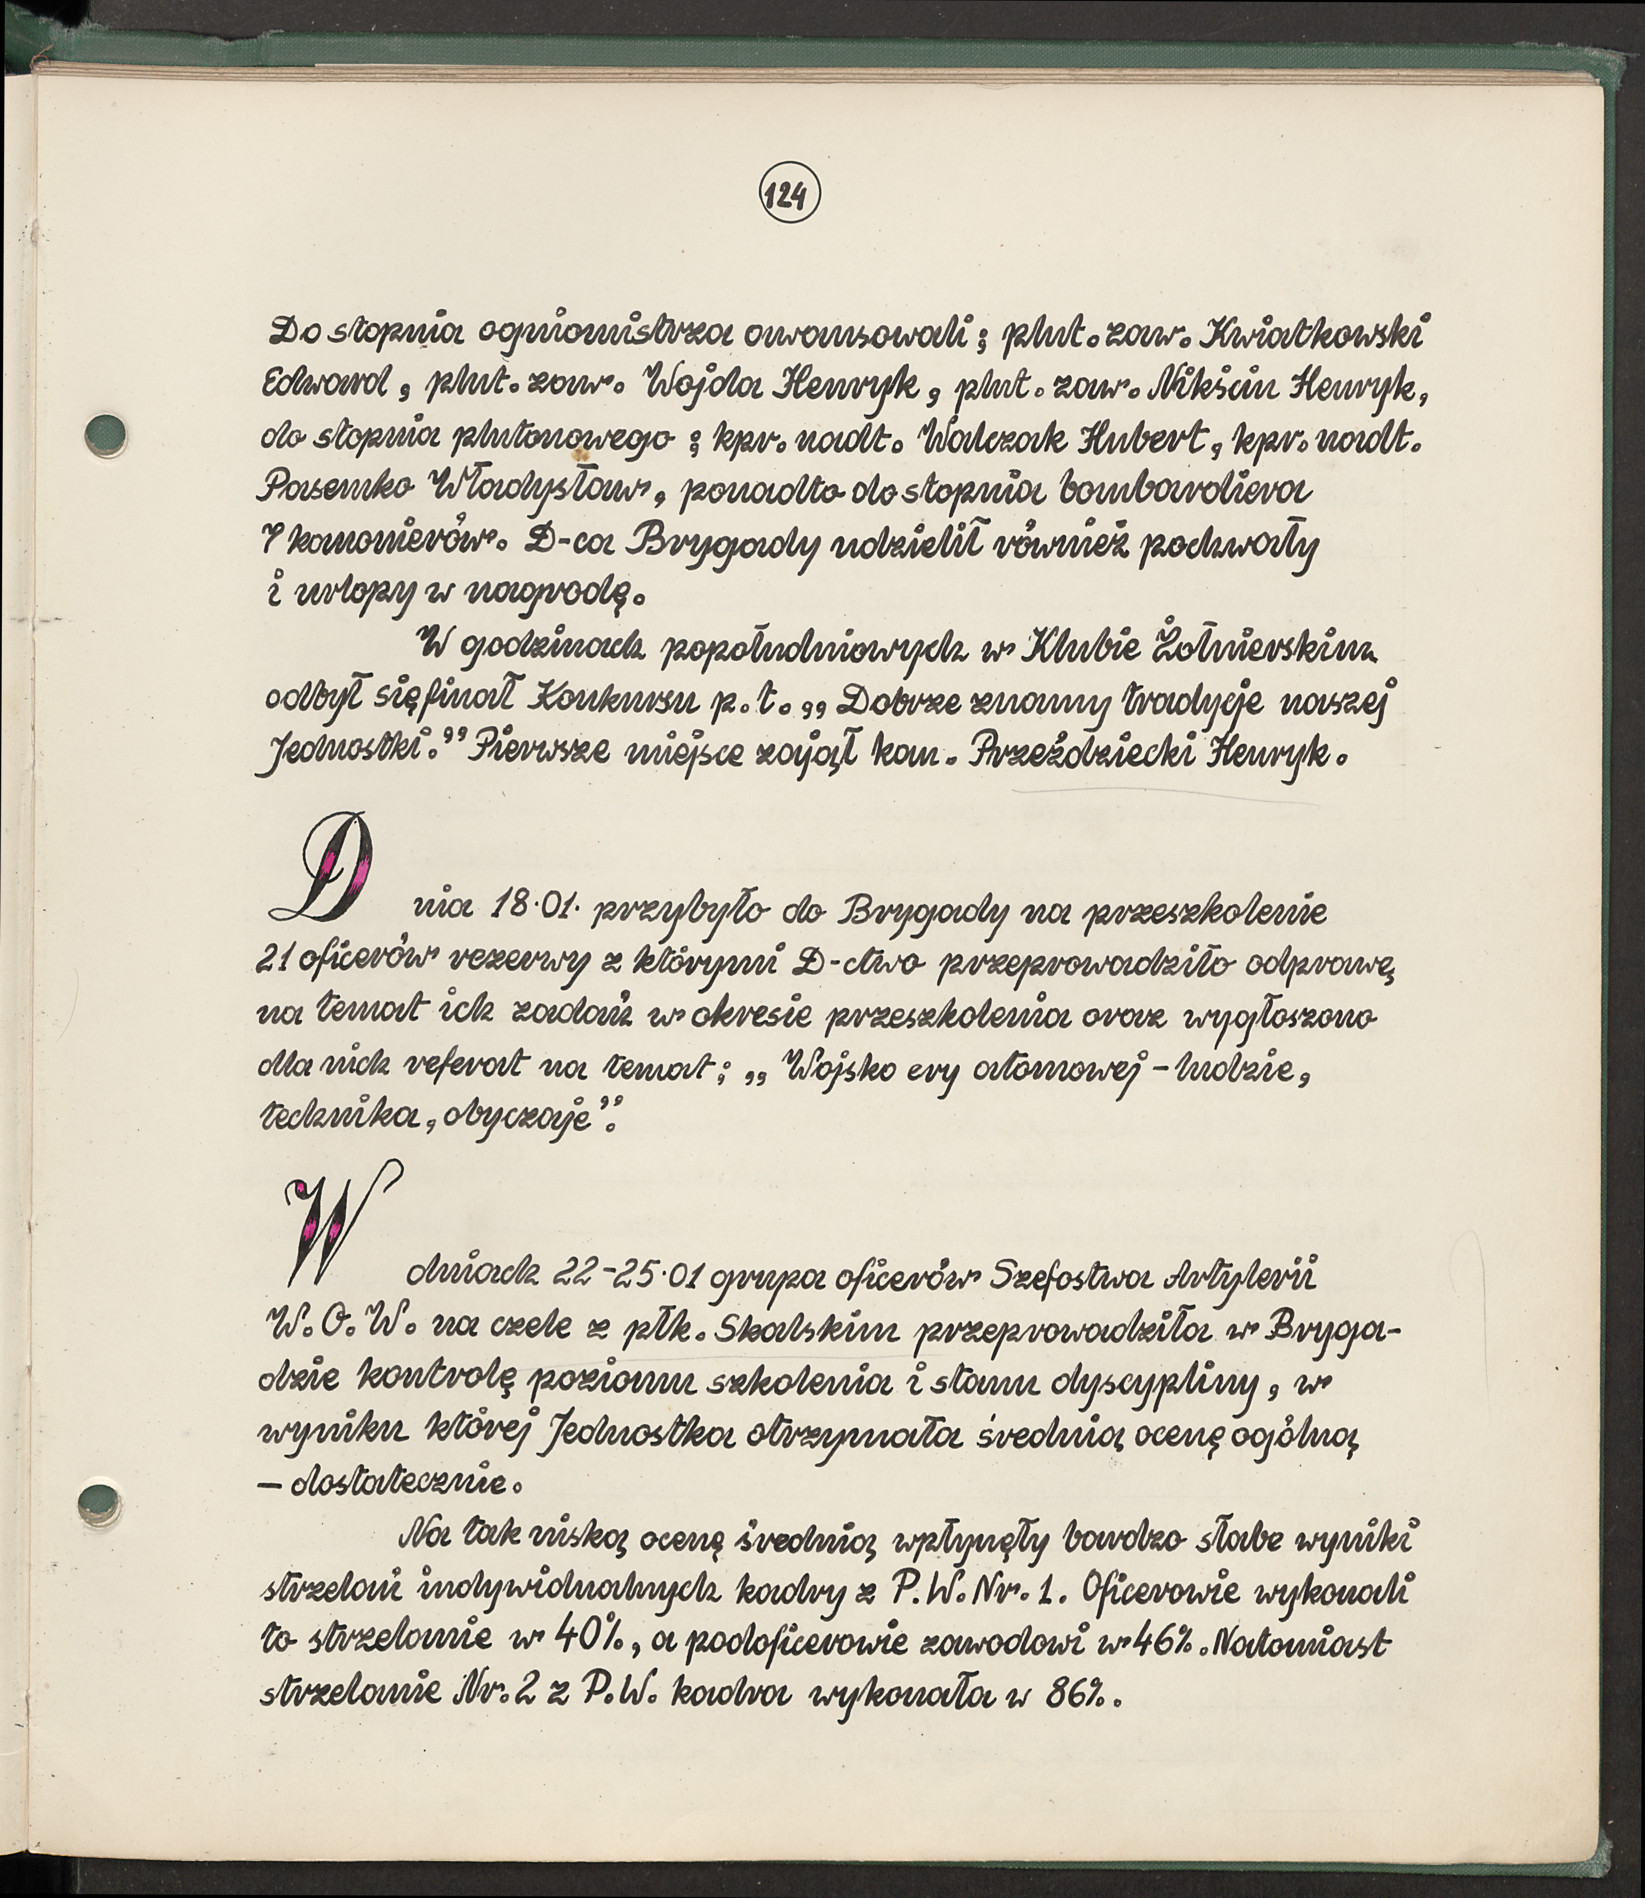 124
Do stopnia ogniomistrza awansowali; plut. zaw. Kwiatkowski
Edward, plut. zaw. Wojda Henryk, plut. zaw. Nikścin Henryk,
do stopnia plutonowego; kpr. nadt. Walczak Hubert, kpr. nadt.
Pasemko Władysław, ponadto do stopnia bombardiera
7 kanonierów. D-ca Brygady udzielił również pochwały
i urlopy w nagrodę.
W godzinach popołudniowych w Klubie Żołnierskim
odbył się finał Konkursu p.t. „Dobrze znamy tradycje naszej
Jednostki." Pierwsze miejsce zajął kan. Przeździecki Henryk.
Dnia 18.01. przybyło do Brygady na przeszkolenie
21 oficerów rezerwy z którymi D-ctwo przeprowadziło odprawę
na temat ich zadań w okresie przeszkolenia oraz wygłoszono
dla nich referat na temat; „Wojsko ery atomowej - ludzie,
technika, obyczaje".
W dniach 22-25.01 grupa oficerów Szefostwa Artylerii
W.O.W. na czele z płk. Skalskim przeprowadziła w Bryga-
dzie kontrolę poziomu szkolenia i stanu dyscypliny, w
wyniku której Jednostka otrzymała średnią ocenę ogólną
- dostatecznie.
Na tak niską ocenę średnią wpłynęły bardzo słabe wyniki
strzelań indywidualnych kadry z P.W. Nr. 1. Oficerowie wykonali
to strzelanie w 40%, a podoficerowie zawodowi w 46%. Natomiast
strzelanie Nr. 2 z P.W. kadra wykonała w 86%.